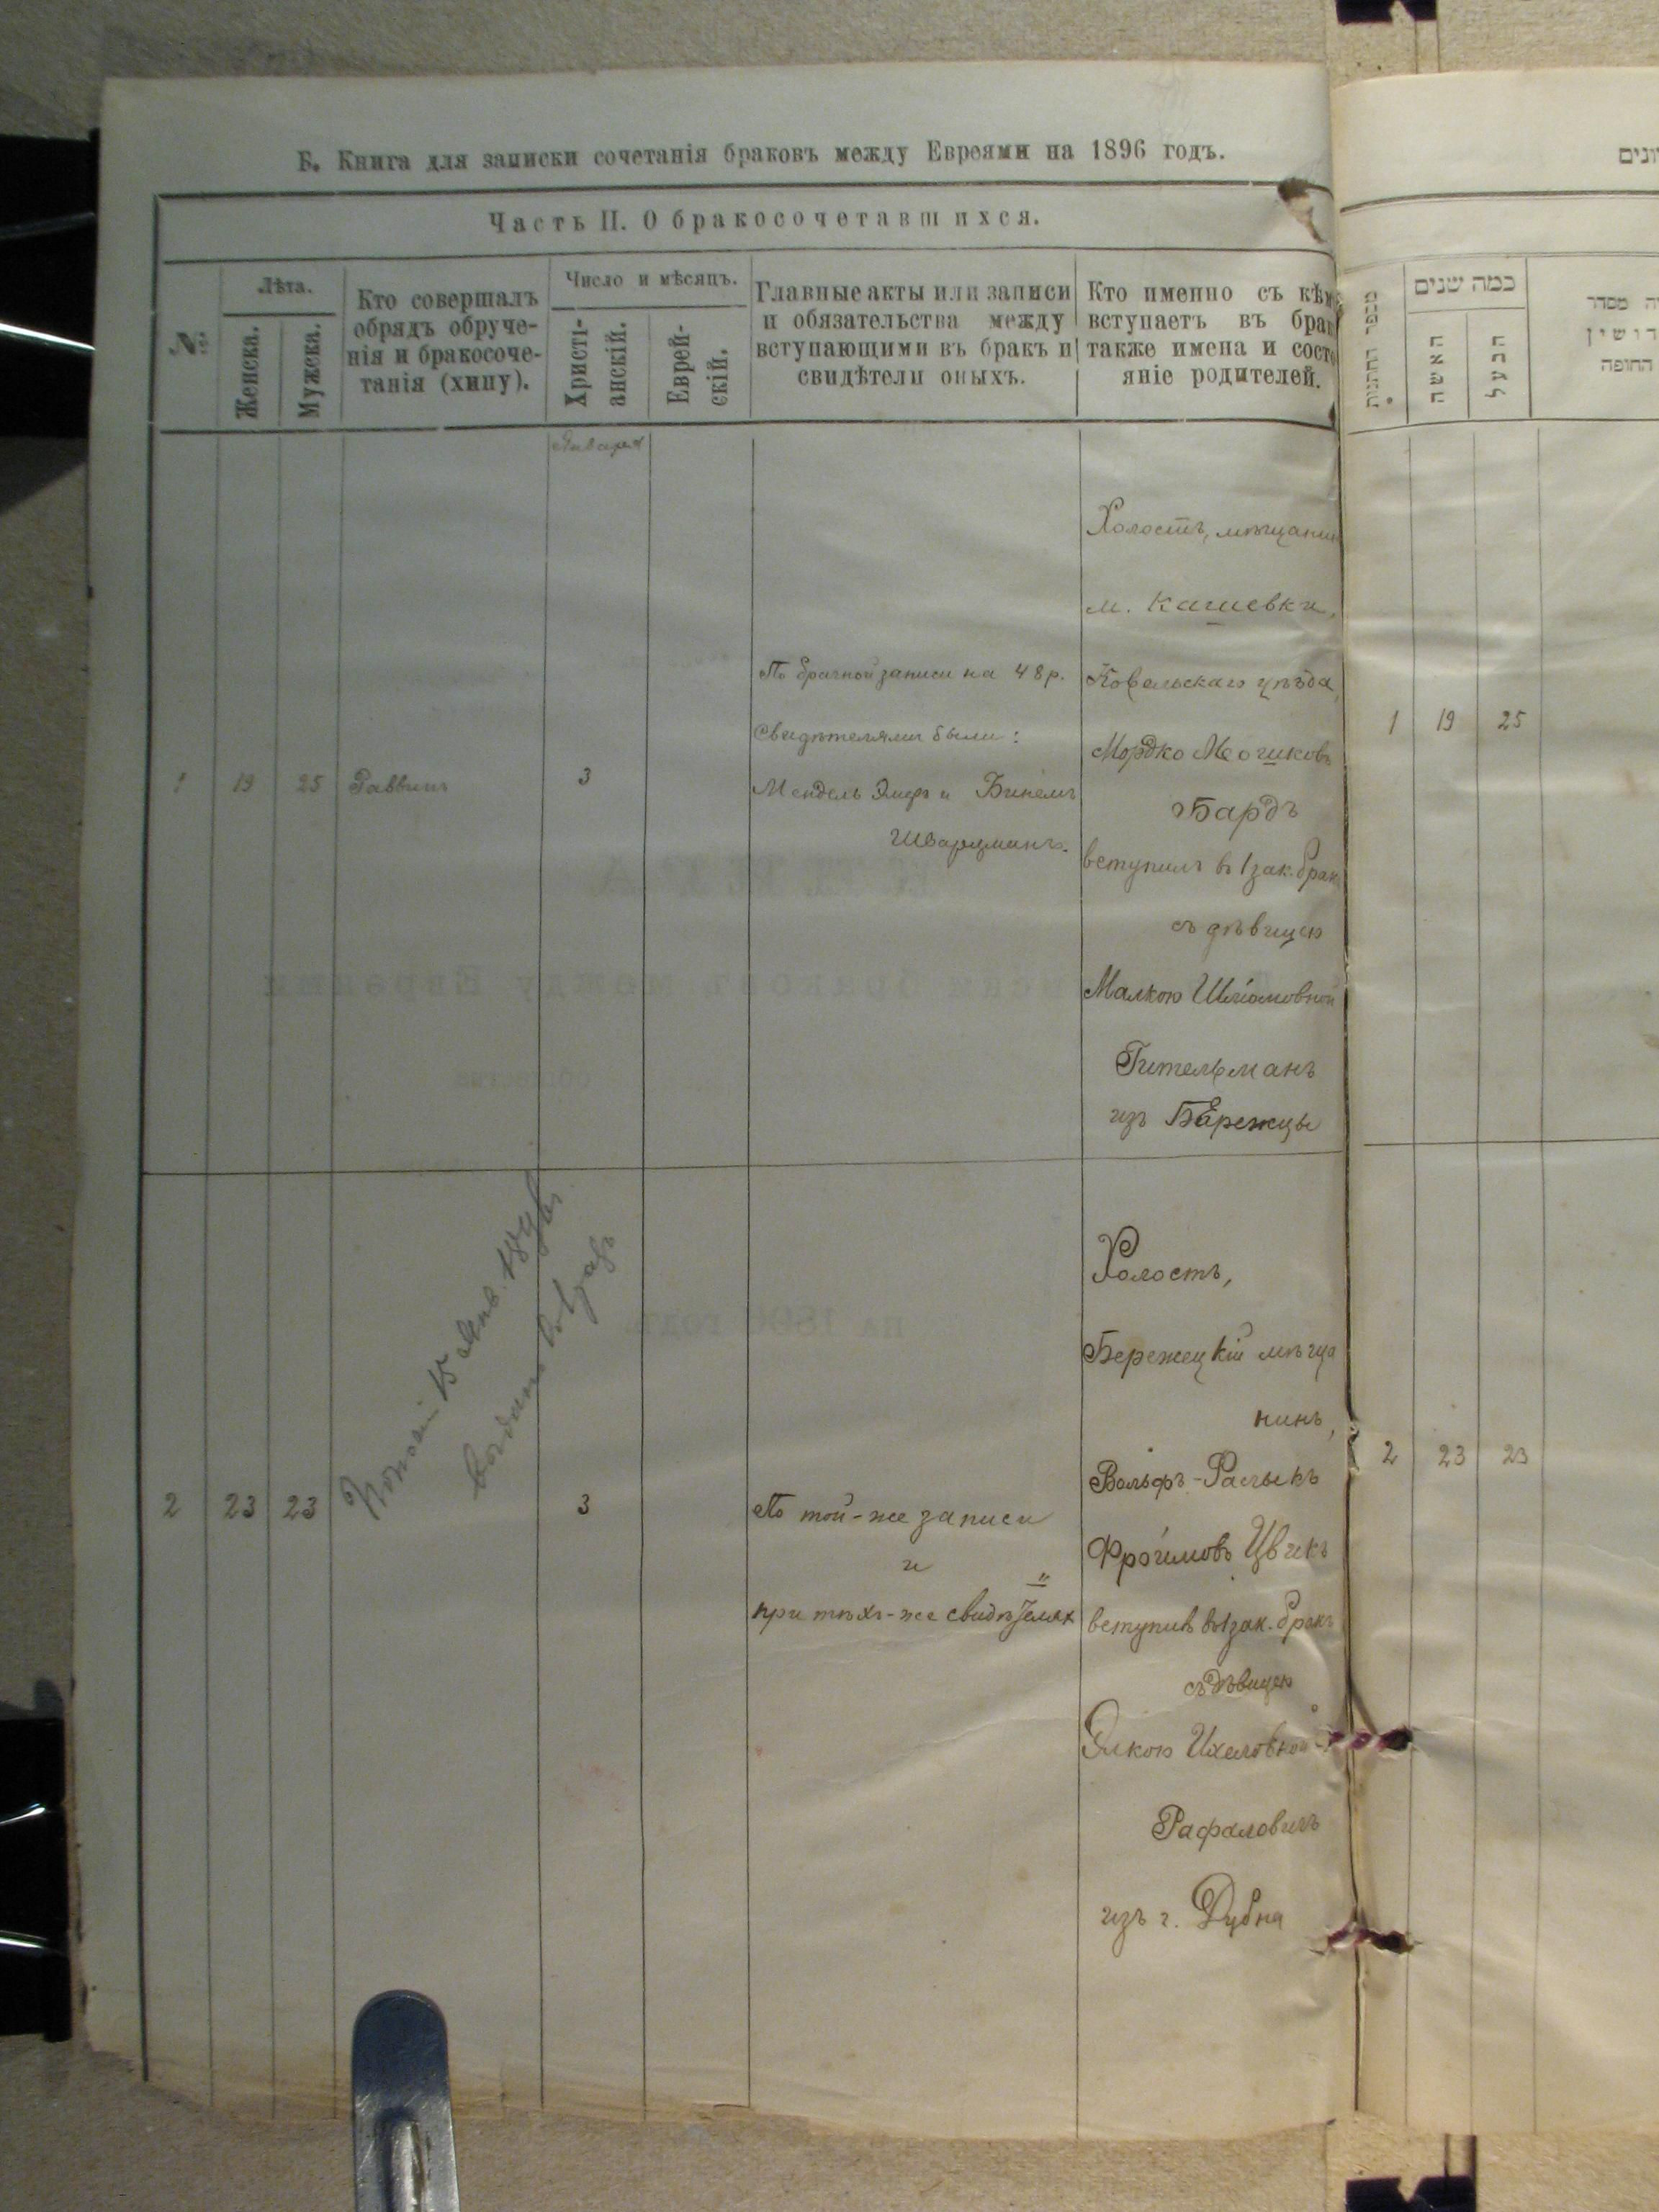 Б. Книга для записки сочетанія браковъ между Евреями на 1896 годъ.
Часть II. О бракосочетавшихся.
№
Лѣта.
Женска.
Мужска.
Кто совершалъ
обрядъ обруче-
нія и бракосоче-
танія (хипу).
Число и мѣсяцъ.
Христі-
анскій.
Еврей-
скій.
Главные акты или записи
и обязательства между
вступающими въ бракъ и
свидѣтели оныхъ.
Кто именно съ кѣмъ
вступаетъ въ бра
также имена и сост
яніе родителей.
Января
1
19
25
Раввинъ
3
По брачной записи на 48 р.
Свидѣтелями были:
Мендель и Бинемъ
Шварцманъ.
Холостъ, мѣщанин
м. Кашевки,
Ковельскаго уѣзда,
Мордко Мошковъ
Бардъ
вступилъ въ 1 зак. брак
съ дѣвицею
Малкою Шліомовной
Гительманъ
изъ Бережцы
2
23
23
Копій 15 Янв.
выдана
3
По той-же записи
и
при тѣхъ-же свидѣтеляхъ
Холостъ,
Бережецкій мѣща
нинъ,
Вольфъ-
Фроимовъ Цвикъ
вступилъ въ 1 зак. бракъ
съ дѣвицею
Элкою Ихеловной
Рафаловичъ
изъ г. Дубна
מספר החתונות
כמה שנים
האשה
הבעל
מסדר
החופה
1
19
25
2
23
23